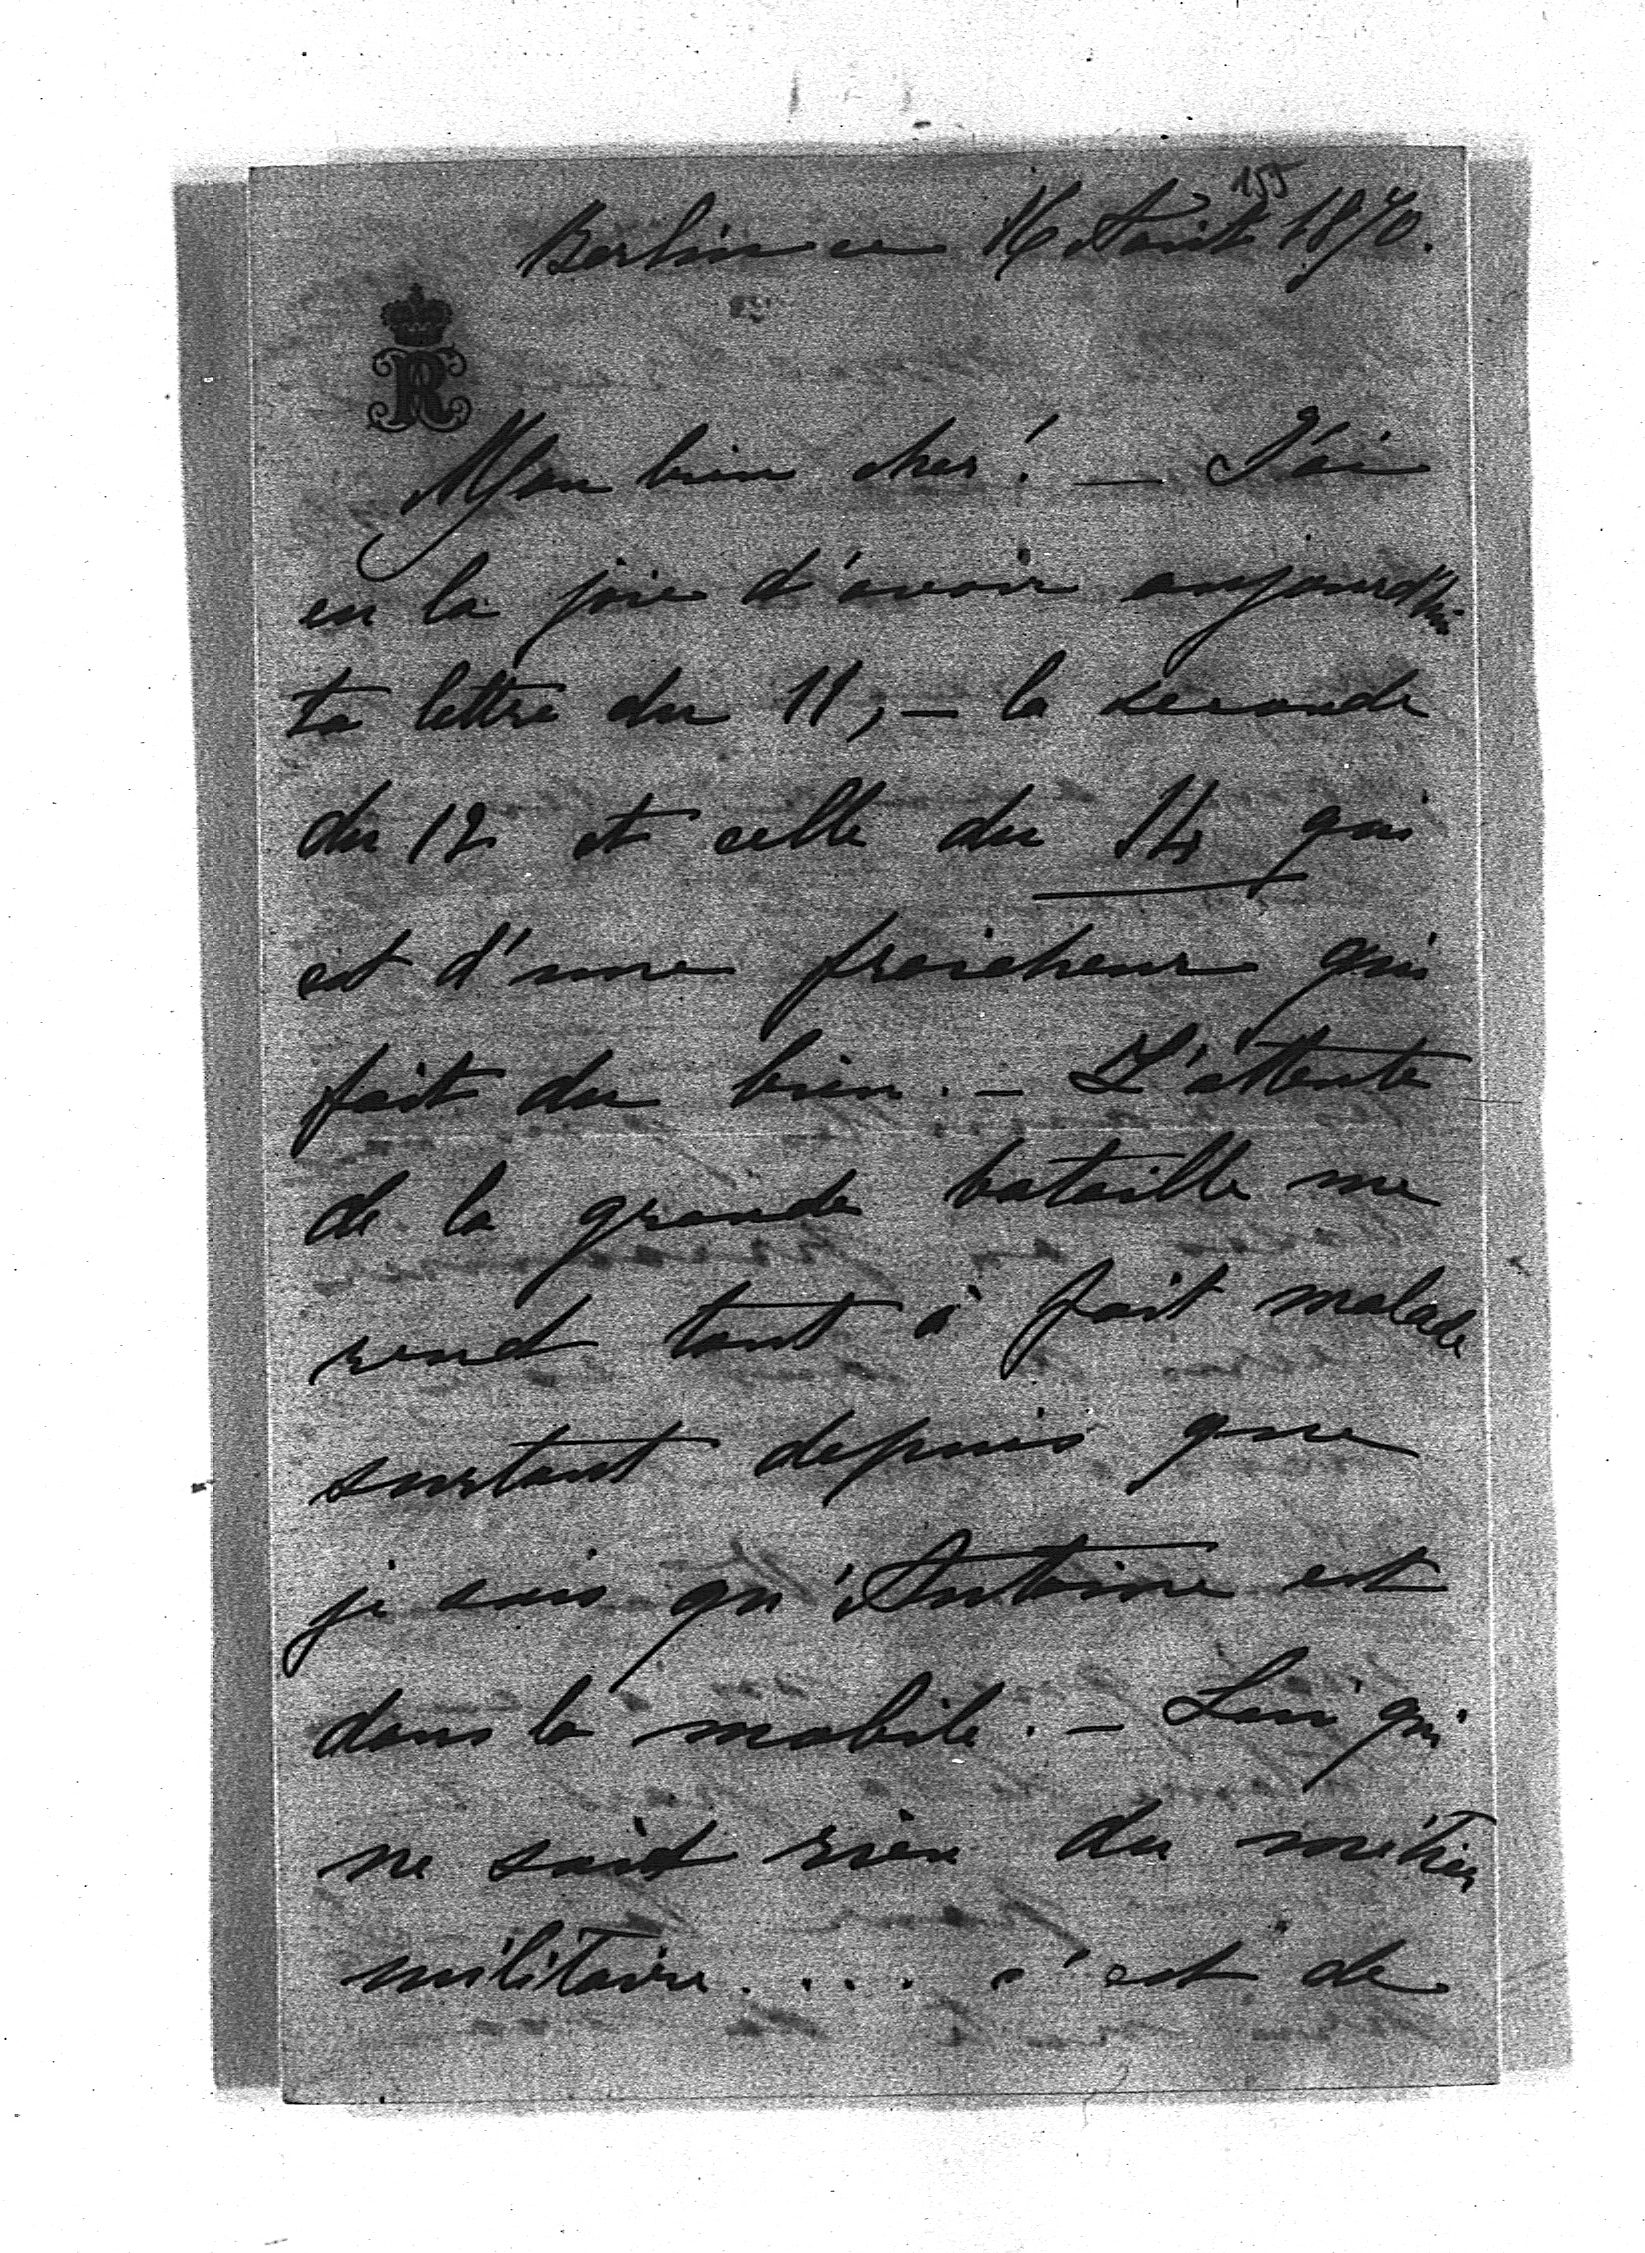 155
Berlin ce 16 Août 1870.
R
Mon bien cher! – J'ai
eu la joie d'avoir aujourd'hui
ta lettre du 11, – la seconde
du 12 et celle du 14 qui
est d'une fraicheur qui
fait du bien. – L'attente
de la grande bataille me
rend tout à fait malade
surtout depuis que
je sais qu'Antoine est
dans la mobile. – Lui qui
ne sait rien du métier
militaire.... c'est de